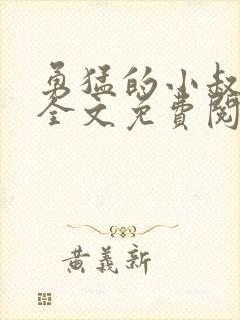 勇猛的小叔
全文免費閱
黃義新